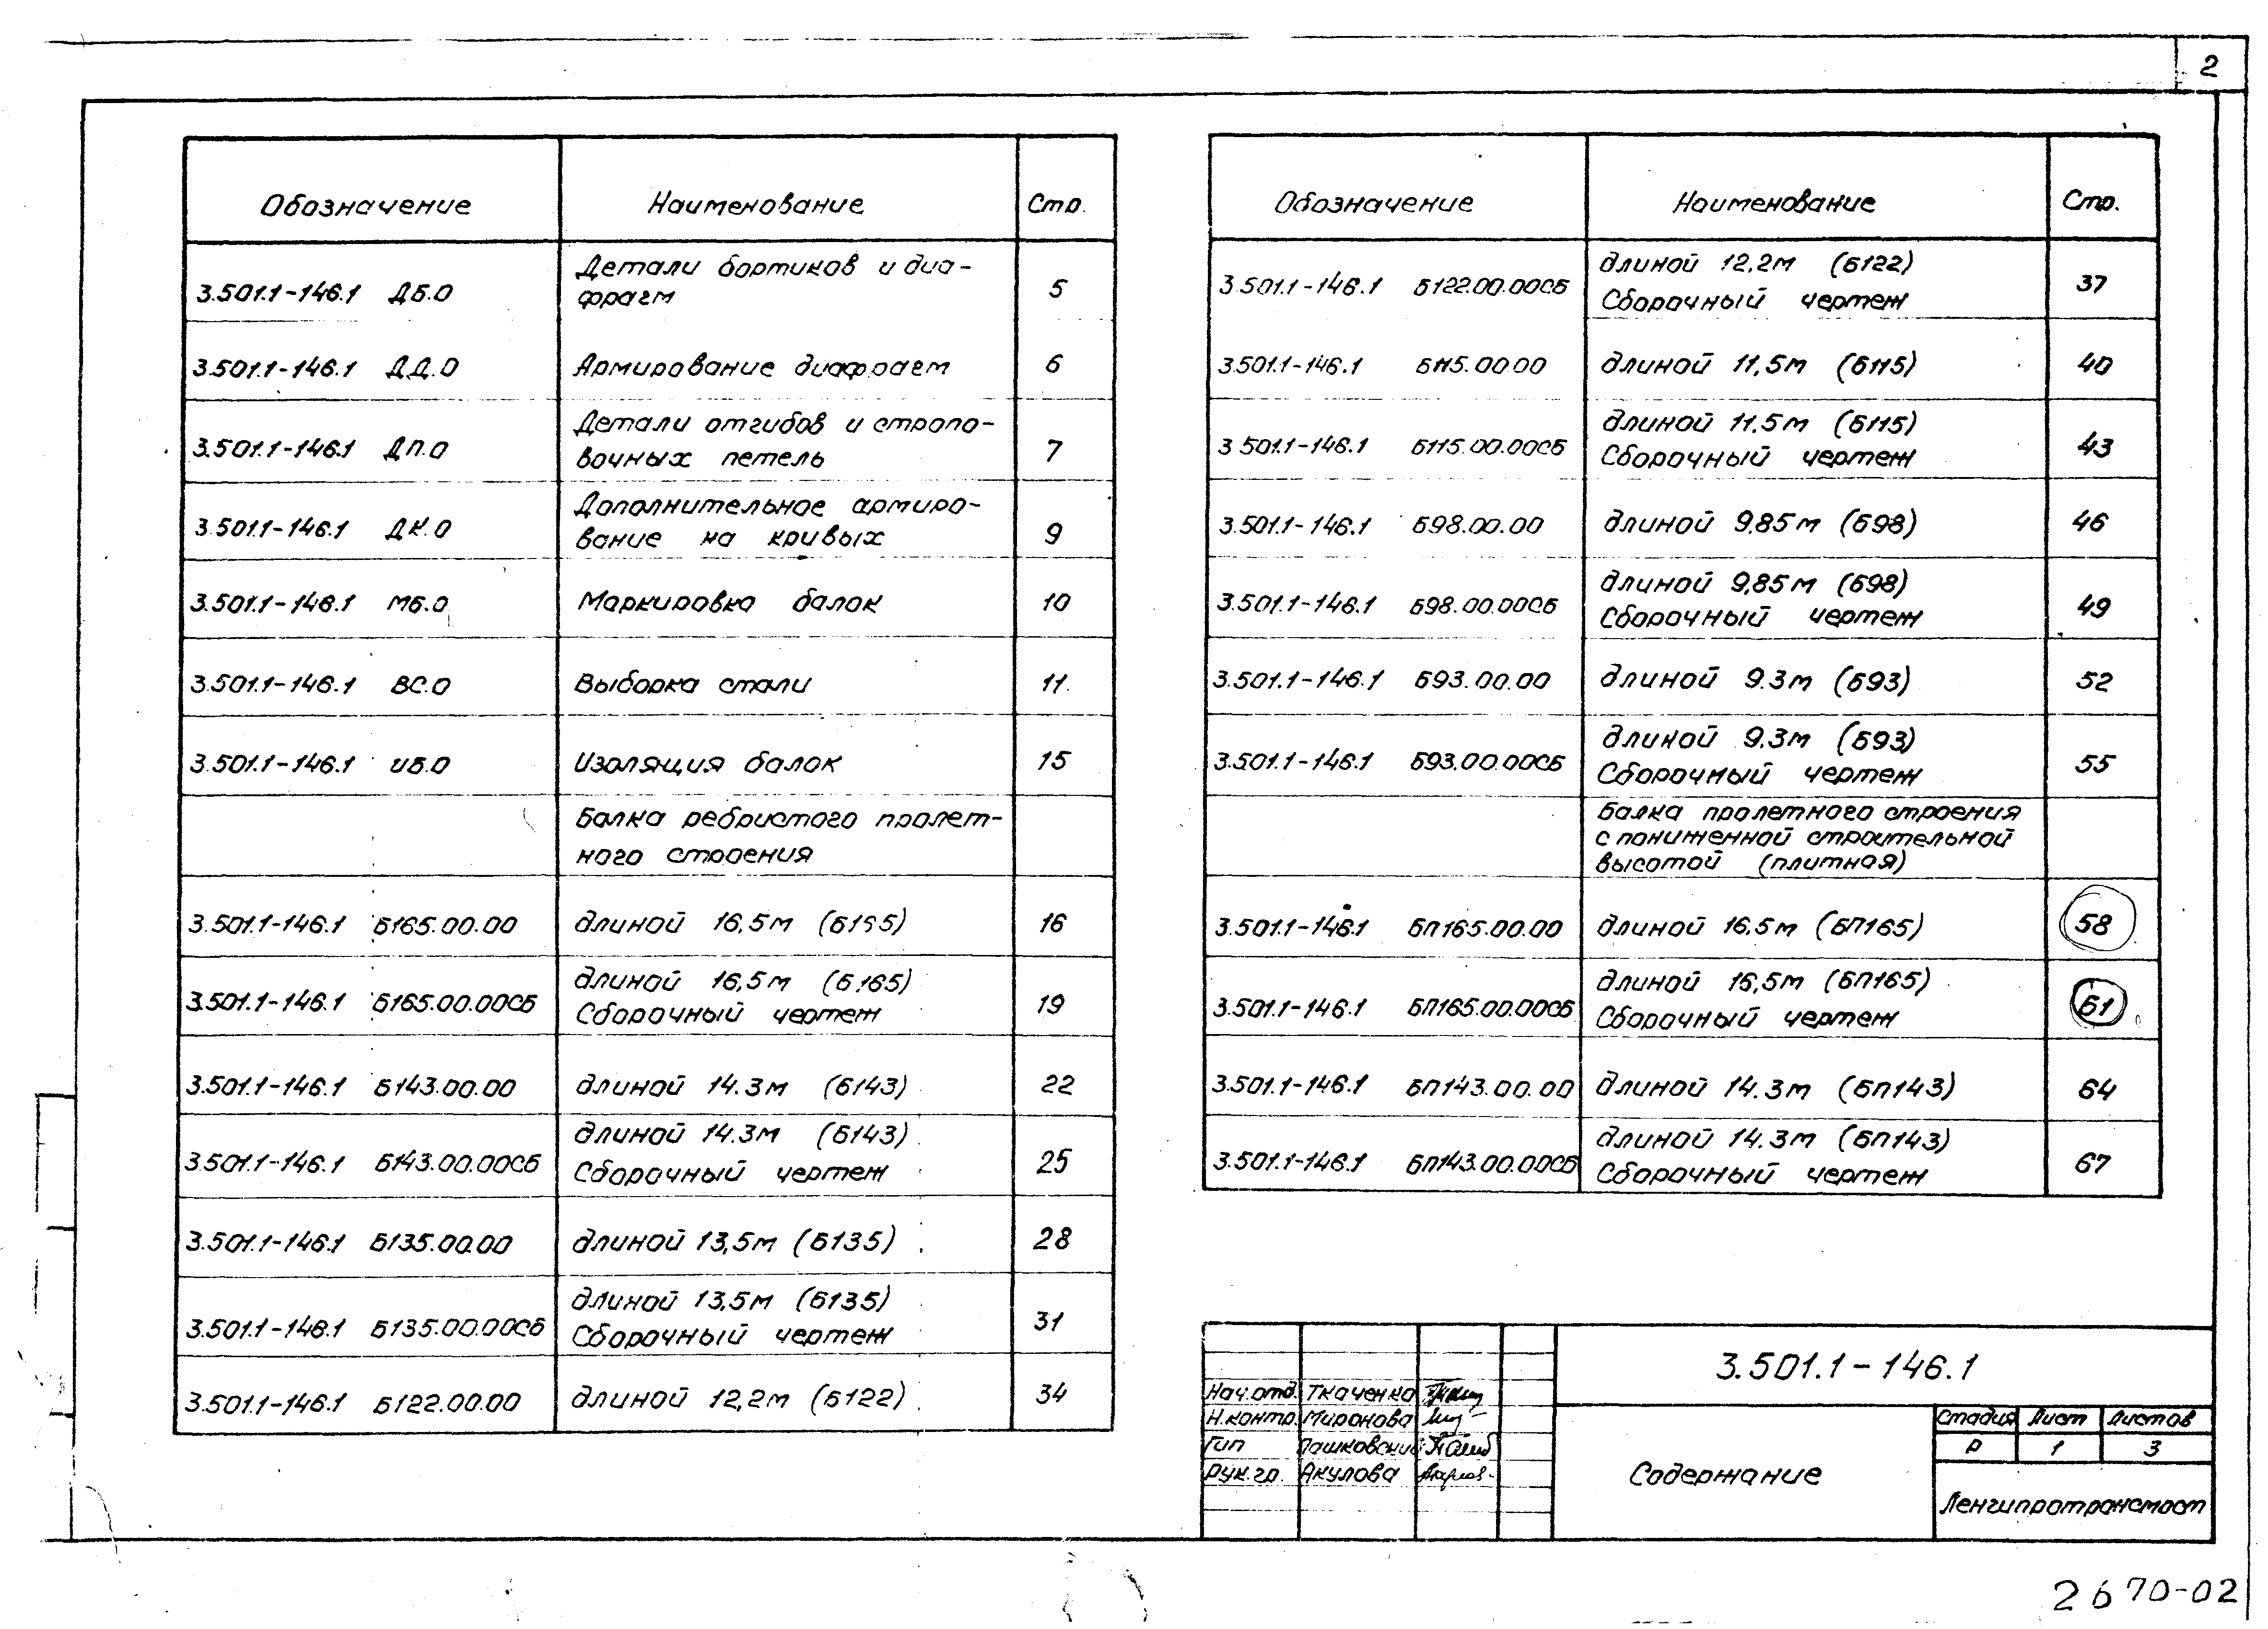 2
Обозначение Наименование Стр.
3.501.1-146.1 ДБ.0 Детали бортиков и диа-
фрагм 5
3.501.1-146.1 ДД.0 Армирование диафрагм 6
3.501.1-146.1 ДП.0 Детали отгибов и стропо-
вочных петель 7
3.501.1-146.1 ДК.0 Дополнительное армиро-
вание на кривых 9
3.501.1-146.1 МБ.0 Маркировка балок 10
3.501.1-146.1 ВС.0 Выборка стали 11
3.501.1-146.1 ИБ.0 Изоляция балок 15
Балка ребристого пролет-
ного строения
3.501.1-146.1 Б165.00.00 длиной 16,5м (Б165) 16
3.501.1-146.1 Б165.00.00СБ длиной 16,5м (Б165)
Сборочный чертеж 19
3.501.1-146.1 Б143.00.00 длиной 14.3м (Б143) 22
3.501.1-146.1 Б143.00.00СБ длиной 14.3м (Б143)
Сборочный чертеж 25
3.501.1-146.1 Б135.00.00 длиной 13,5м (Б135) 28
3.501.1-146.1 Б135.00.00СБ длиной 13,5м (Б135)
Сборочный чертеж 31
3.501.1-146.1 Б122.00.00 длиной 12,2м (Б122) 34
Обозначение Наименование Стр.
3.501.1-146.1 Б122.00.00СБ длиной 12,2м (Б122)
Сборочный чертеж 37
3.501.1-146.1 Б115.00.00 длиной 11,5м (Б115) 40
3.501.1-146.1 Б115.00.00СБ длиной 11.5м (Б115)
Сборочный чертеж 43
3.501.1-146.1 Б98.00.00 длиной 9,85м (Б98) 46
3.501.1-146.1 Б98.00.00СБ длиной 9,85м (Б98)
Сборочный чертеж 49
3.501.1-146.1 Б93.00.00 длиной 9.3м (Б93) 52
3.501.1-146.1 Б93.00.00СБ длиной 9.3м (Б93)
Сборочный чертеж 55
Балка пролетного строения
с пониженной строительной
высотой (плитная)
3.501.1-146.1 БП165.00.00 длиной 16,5м (БП165) 58
3.501.1-146.1 БП165.00.00СБ длиной 16,5м (БП165)
Сборочный чертеж 61
3.501.1-146.1 БП143.00.00 длиной 14.3м (БП143) 64
3.501.1-146.1 БП143.00.00СБ длиной 14.3м (БП143)
Сборочный чертеж 67
3.501.1-146.1
Нач.отд. Ткаченко
Н.контр. Миронова
Гип Пашковский
Рук.гр. Акулова
Содержание
Стадия Лист Листов
Р 1 3
Ленгипротрансмост
2670-02